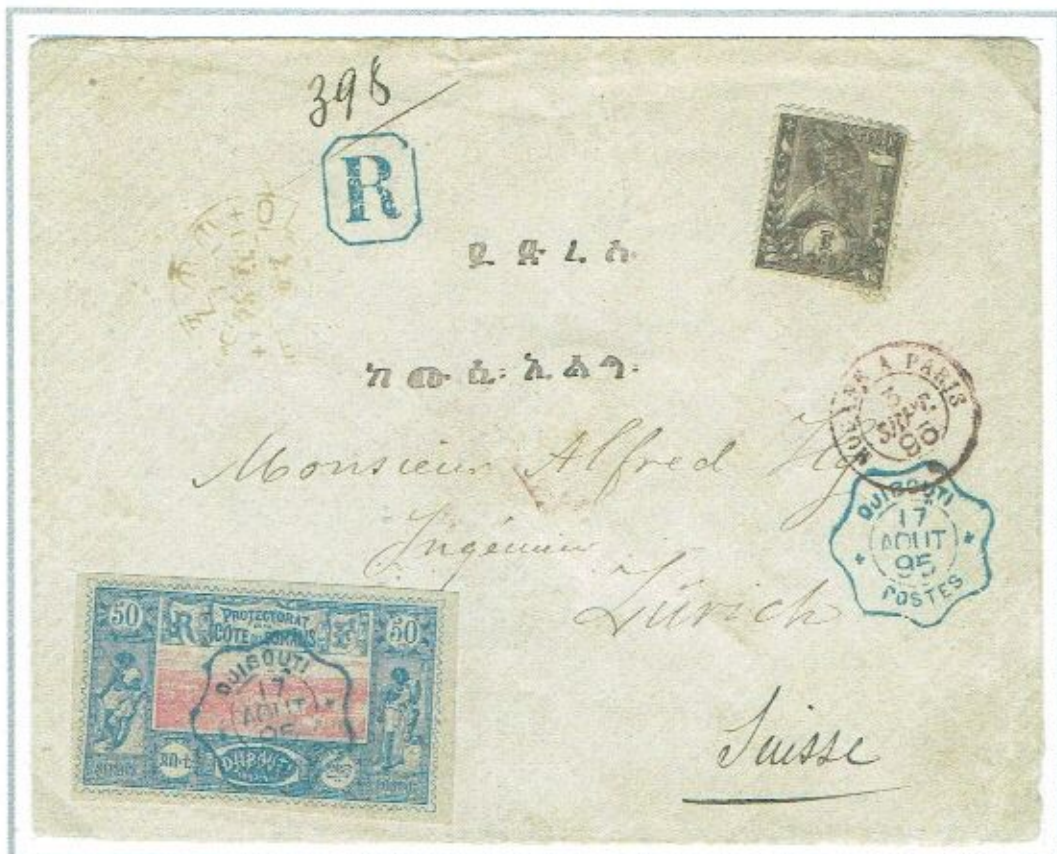 398
R
ይድረስ
ከሙሴ፡ኢልግ፡
MODANE A PARIS
SEPT
95
Monsieur Alfred Ilg
Ingénieur
Zürich
DJIBOUTI
17
AOUT
95
POSTES
50 PROTECTORAT 50
CÔTE DES SOMALIS
DJIBOUTI
17
AOUT
95
DJIBOUTI
Suisse